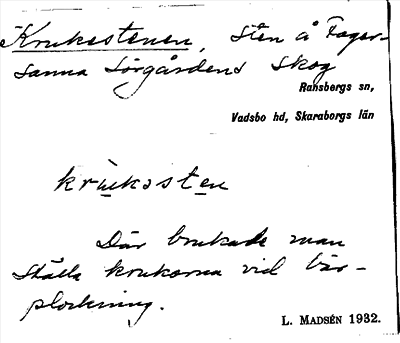 Krukestenen, sten å Fager-
sanna Sörgårdens skog
Ransbergs sn,
Vadsbo hd, Skaraborgs län
krukəsten
Där brukade man
ställa krukorna vid bär-
plockning.
L. MADSÉN 1932.